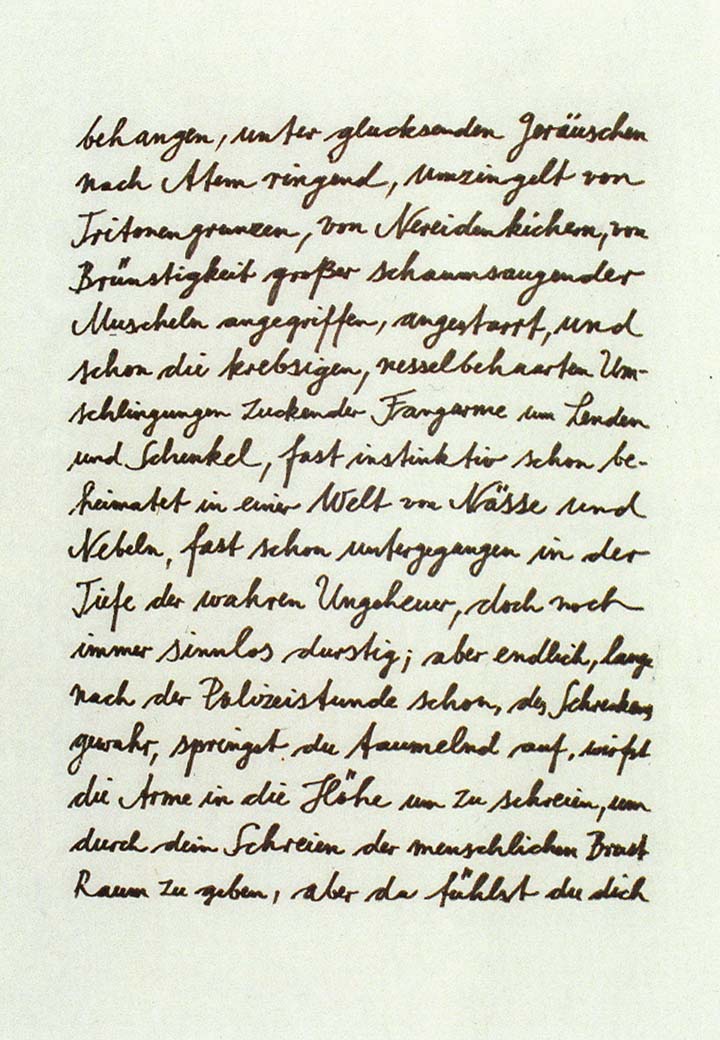 behangen, unter glucksenden Geräuschen
nach Atem ringend, umzingelt von
Tritonengrunzen, von Nereidenkichern, von
Brünstigkeit großer schaumsaugender
Muscheln angegriffen, angestarrt, und
schon die krebsigen, nesselbehaarten Um-
schlingungen zuckender Fangarme um Lenden
und Schenkel, fast instinktiv schon be-
heimatet in einer Welt von Nässe und
Nebeln, fast schon untergegangen in der
Tiefe der wahren Ungeheuer, doch noch
immer sinnlos durstig; aber endlich, lange
nach der Polizeistunde schon, des Schreckens
gewahr, springst du taumelnd auf, wirfst
die Arme in die Höhe um zu schreien, um
durch dein Schreien der menschlichen Brust
Raum zu geben, aber da fühlst du dich